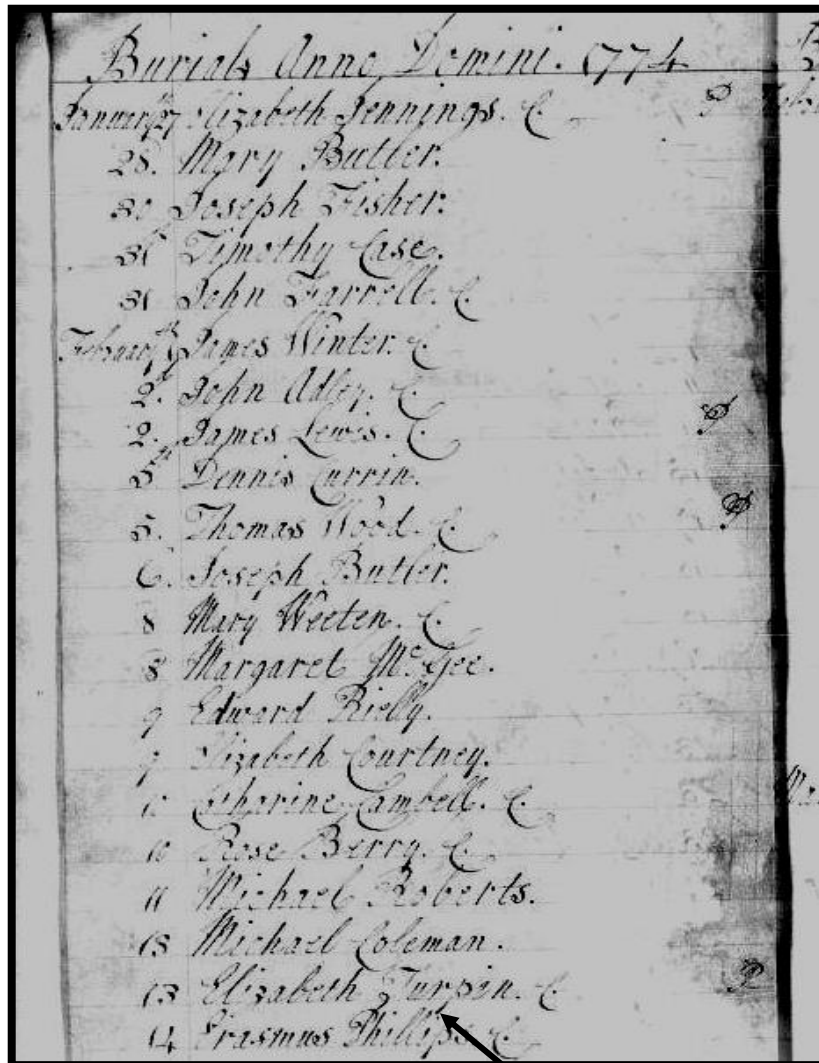 Burials Anno Domini. 1774
January 27th Elizabeth Jennings. C. P
28. Mary Butler.
30 Joseph Fisher.
31st Timothy Case.
31 John Farrell. C.
February 1st James Winter. C
2d. John Adley. C.
2. James Lewis. C. P
5th Dennis Currin.
5. Thomas Wood. C. P
6. Joseph Butler.
8 Mary Weeten. C.
8 Margaret McGee.
9 Edward Rielly.
9 Elizabeth Courtney.
10 Catharine Cambell. C.
10 Rose Berry. C.
11 Michael Roberts.
13 Michael Coleman.
13 Elizabeth Turpin. C. P
14 Erasmus Phillips. C.